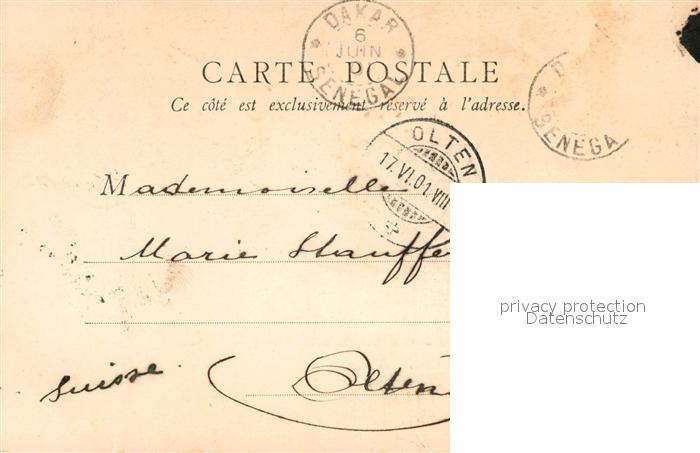 DAKAR
6
JUIN
SENEGAL
CARTE POSTALE
Ce côté est exclusivement réservé à l'adresse.
SENEGA
OLTEN
17.VI.01.VIII
Mademoiselle
Marie Stauffe
privacy protection
Datenschutz
Suisse.
Olten